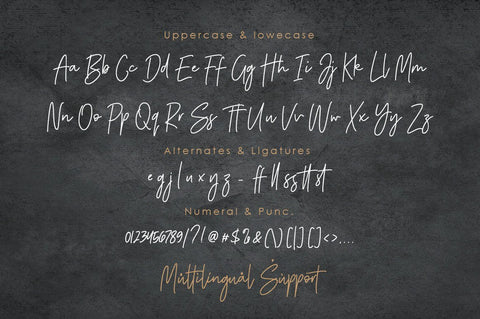 Uppercase & lowecase
Aa Bb Cc Dd Ee Ff Gg Hh Ii Jj Kk Ll Mm
Nn Oo Pp Qq Rr Ss Tt Uu Vv Ww Xx Yy Zz
Alternates & Ligatures
e g j l u x y z - ff ll ss tt st
Numeral & Punc.
0123456789/?!@#$%&(\)[|]{}<>,...
Multilingual Support